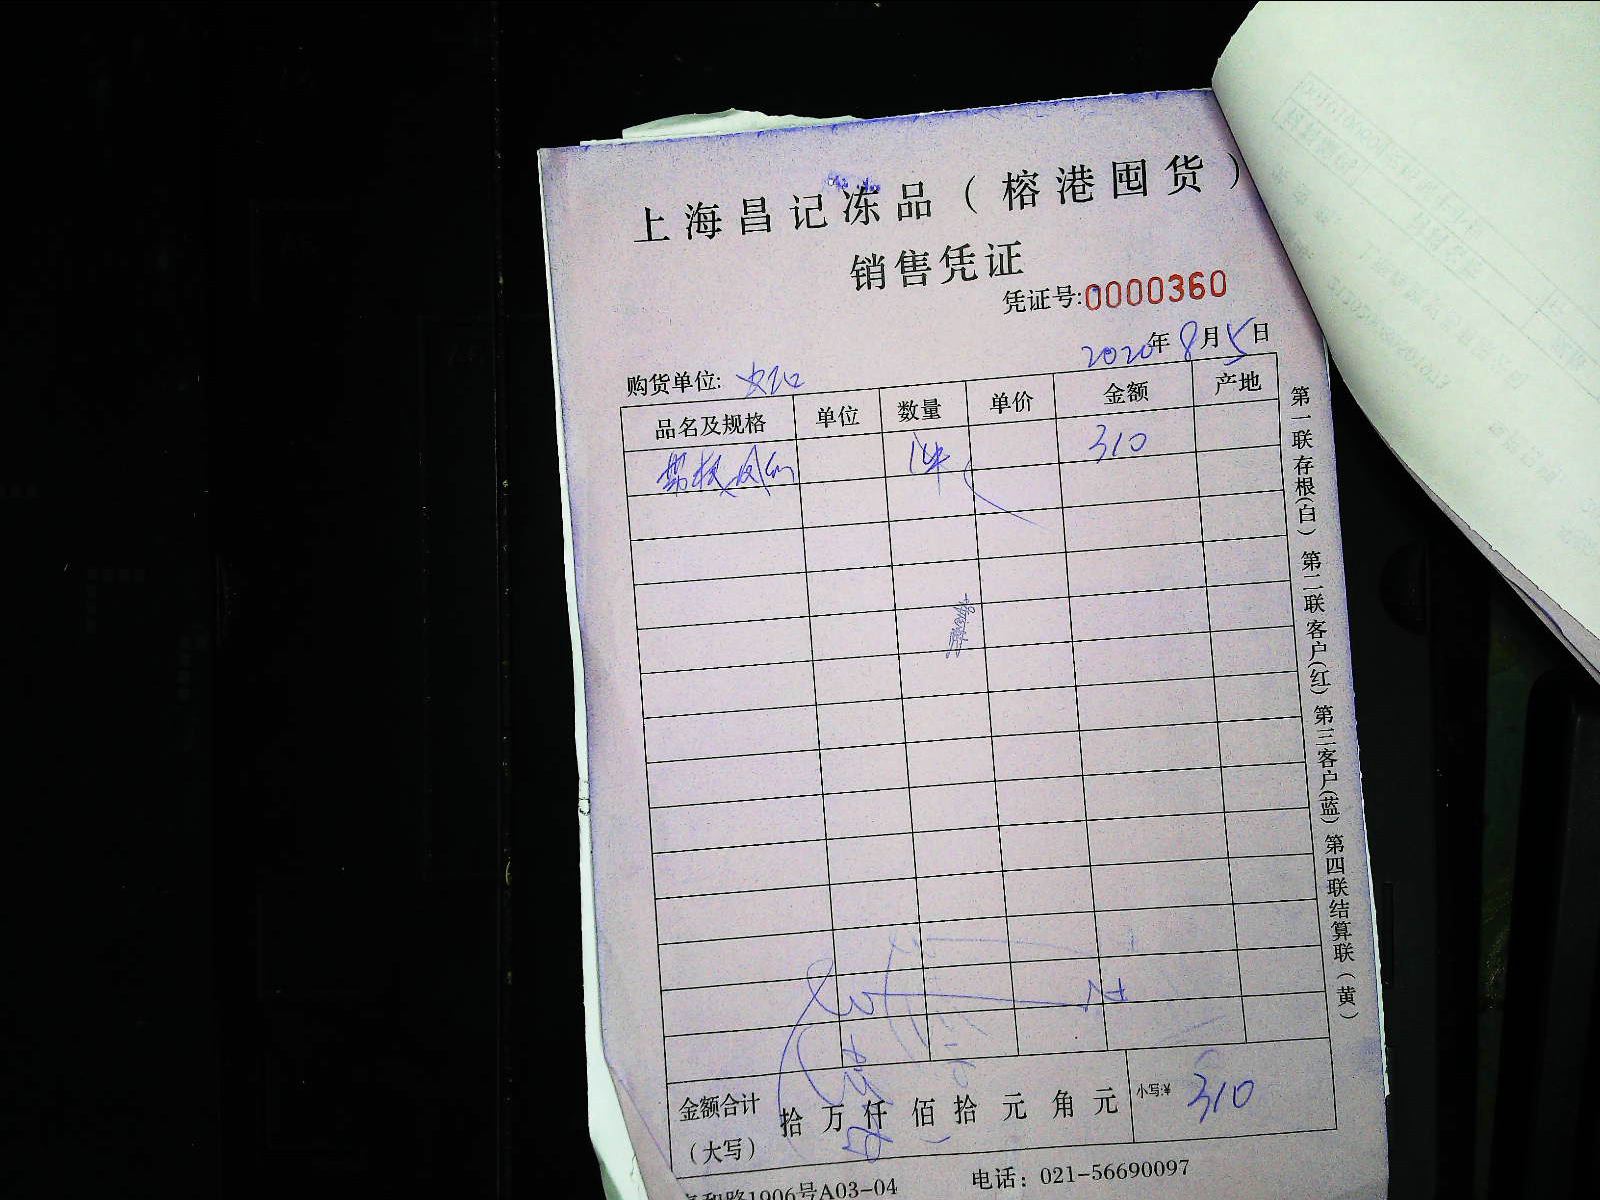 上海昌记冻品（榕港囤货）
销售凭证
凭证号:0000360
2020年8月5日
购货单位:
品名及规格 单位 数量 单价 金额 产地
1件 310
金额合计（大写） 拾 万 仟 佰 拾 元 角 元 小写:¥ 310
路1906号A03-04 电话：021-56690097
第一联存根(白) 第二联客户(红) 第三客户(蓝) 第四联结算联（黄）